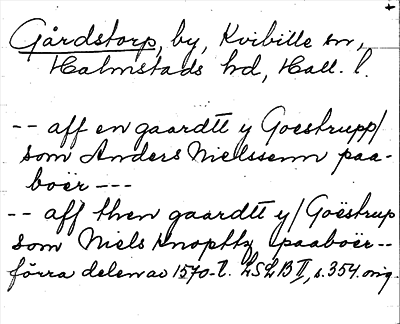 Gårdstorp, by, Kvibille sn,
Halmstads hd, Hall. l.
-- aff en gaardtt y Goestrupp/
som Anders Nielssenn paa-
boer ---
-- aff then gaardtt y/Goëstrup
som Niels Knopttz paaboër--
förra delen av 1570-t. LSLB II, s. 354. orig.